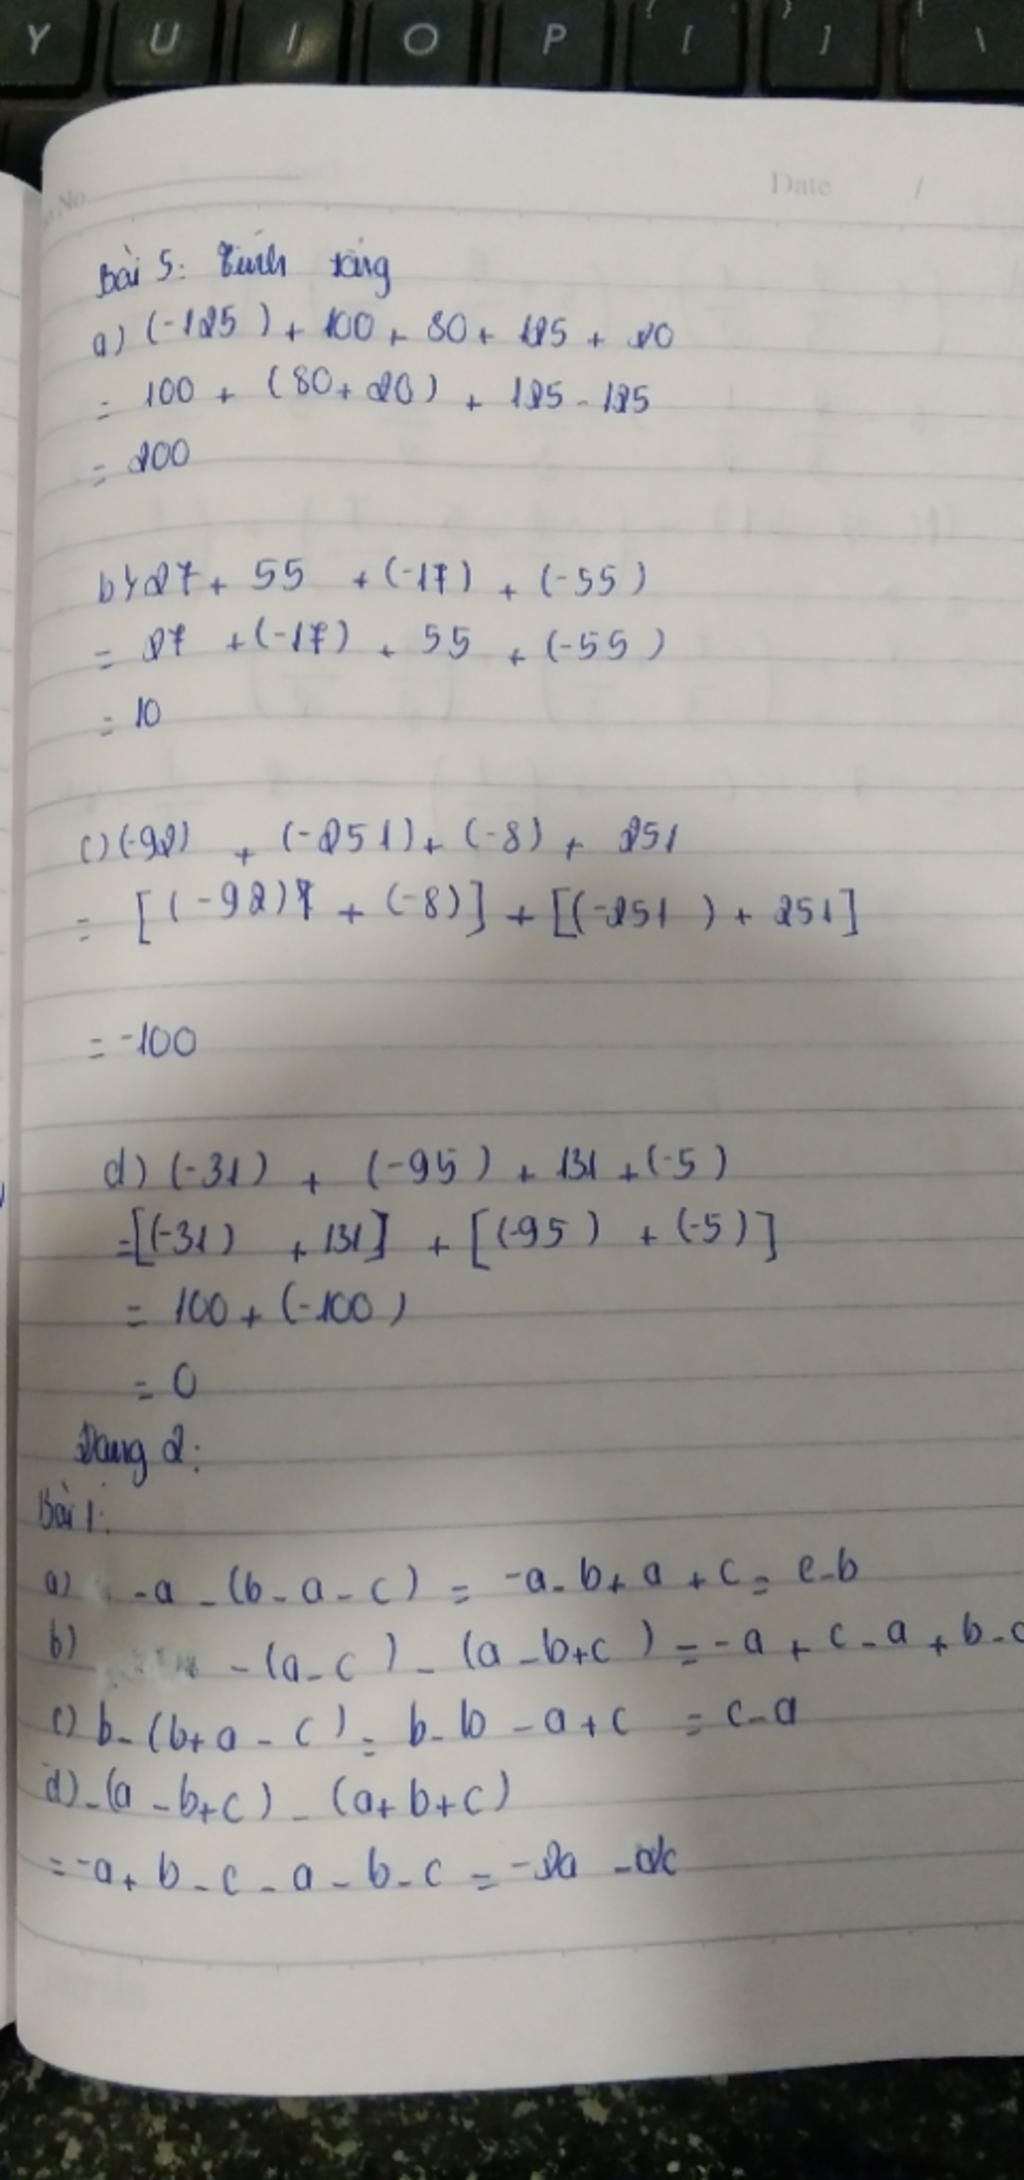 Y U I O P { [ } ] \
No. Date /
Bài 5: Tính tổng
a) (-125) + 100 + 80 + 125 + 20
= 100 + (80 + 20) + 125 - 125
= 200
b) 27 + 55 + (-17) + (-55)
= 27 + (-17) + 55 + (-55)
= 10
c) (-92) + (-251) + (-8) + 251
= [(-92) + (-8)] + [(-251) + 251]
= -100
d) (-31) + (-95) + 131 + (-5)
= [(-31) + 131] + [(-95) + (-5)]
= 100 + (-100)
= 0
Dạng 2:
Bài 1:
a) -a - (b - a - c) = -a - b + a + c = c - b
b) - (a - c) - (a - b + c) = -a + c - a + b - c
c) b - (b + a - c) = b - b - a + c = c - a
d) -(a - b + c) - (a + b + c)
= -a + b - c - a - b - c = -2a - 2c